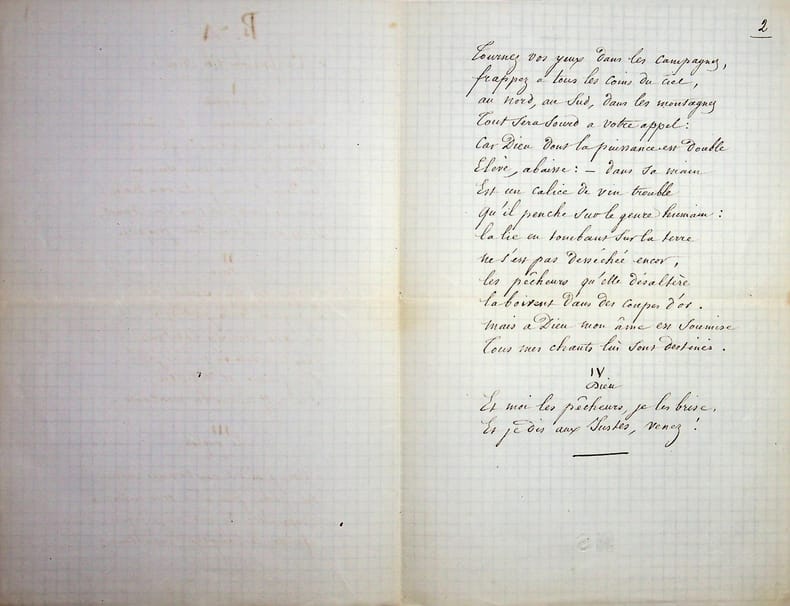 2
Tournez vos yeux dans les campagnes,
frappez a tous les coins du ciel,
au nord, au Sud, dans les montagnes
Tout sera sourd a votre appel :
Car Dieu dont la puissance est double
Elève, abaisse : – dans sa main
Est un calice de vin trouble
Qu'il penche sur le genre humain :
la lie en tombant sur la terre
ne s'est pas desséchée encor,
les pêcheurs qu'elle désaltère
la boivent dans des coupes d'or.
mais a Dieu mon âme est soumise
Tous mes chants lui sont destinés.
IV
Dieu
Et moi les pêcheurs, je les brise,
Et je dis aux Justes, venez !